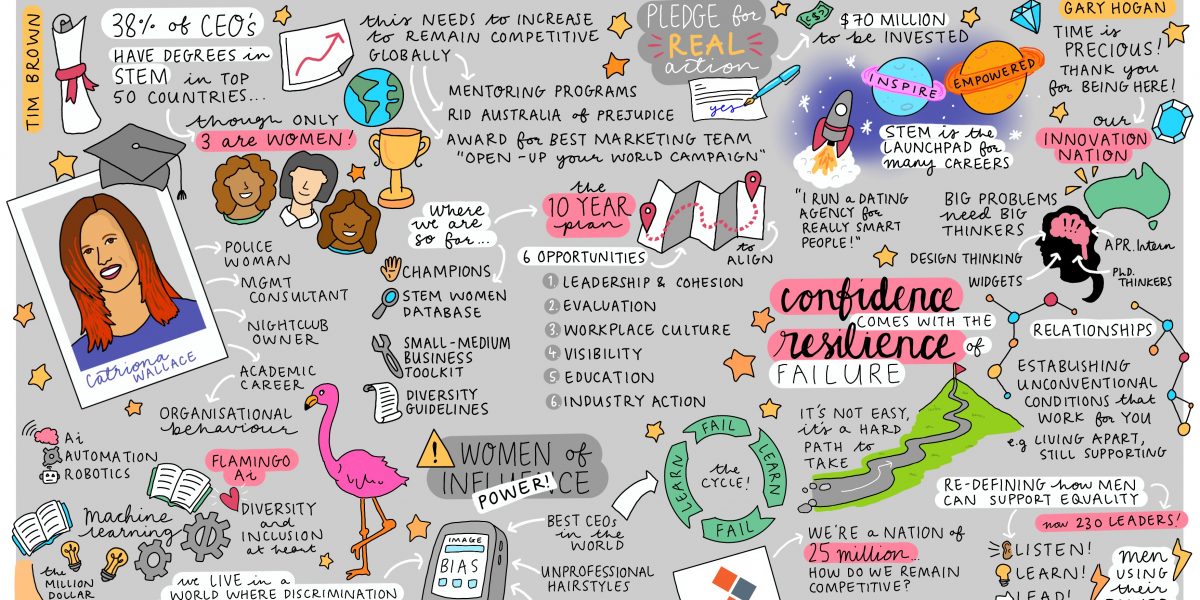 TIM BROWN
38% of CEO's
HAVE DEGREES in
STEM in TOP
50 COUNTRIES...
though ONLY
3 are WOMEN!
this NEEDS to INCREASE
to REMAIN COMPETITIVE
GLOBALLY
MENTORING PROGRAMS
RID AUSTRALIA of PREJUDICE
AWARD for BEST MARKETING TEAM
"OPEN-UP your WORLD CAMPAIGN"
PLEDGE for
REAL
action
yes
$70 MILLION
to be INVESTED
INSPIRE
EMPOWERED
STEM is the
LAUNCHPAD for
many CAREERS
GARY HOGAN
TIME is
PRECIOUS!
THANK you
for BEING HERE!
our
INNOVATION
NATION
"I RUN a DATING
AGENCY for
REALLY SMART
PEOPLE!"
BIG PROBLEMS
need BIG
THINKERS
DESIGN THINKING
WIDGETS
APR.Intern
PhD.
THINKERS
Catriona
WALLACE
POLICE
WOMAN
MGMT
CONSULTANT
NIGHTCLUB
OWNER
ACADEMIC
CAREER
ORGANISATIONAL
behaviour
where
we are
so far...
CHAMPIONS
STEM WOMEN
DATABASE
SMALL-MEDIUM
BUSINESS
TOOLKIT
DIVERSITY
GUIDELINES
the
10 YEAR
plan
to
ALIGN
6 OPPORTUNITIES
1 LEADERSHIP & COHESION
2 EVALUATION
3 WORKPLACE CULTURE
4 VISIBILITY
5 EDUCATION
6 INDUSTRY ACTION
confidence
COMES WITH THE
resilience of
FAILURE
IT'S NOT EASY,
it's a HARD
PATH to
TAKE
RELATIONSHIPS
ESTABLISHING
UNCONVENTIONAL
CONDITIONS that
WORK for YOU
e.g LIVING APART,
STILL SUPPORTING
Ai
AUTOMATION
ROBOTICS
FLAMINGO
Ai
Machine
learning
DIVERSITY
and
INCLUSION
at heart
the
MILLION
DOLLAR
we LIVE in a
WORLD WHERE DISCRIMINATION
WOMEN of
INFLUENCE
POWER!
IMAGE
BIAS
BEST CEOs
in the
WORLD
UNPROFESSIONAL
HAIRSTYLES
FAIL
LEARN
FAIL
LEARN
the
CYCLE!
WE'RE a NATION of
25 million...
HOW DO WE REMAIN
COMPETITIVE?
RE-DEFINING how MEN
CAN SUPPORT EQUALITY
now 230 LEADERS!
LISTEN!
LEARN!
LEAD!
men
USING
their